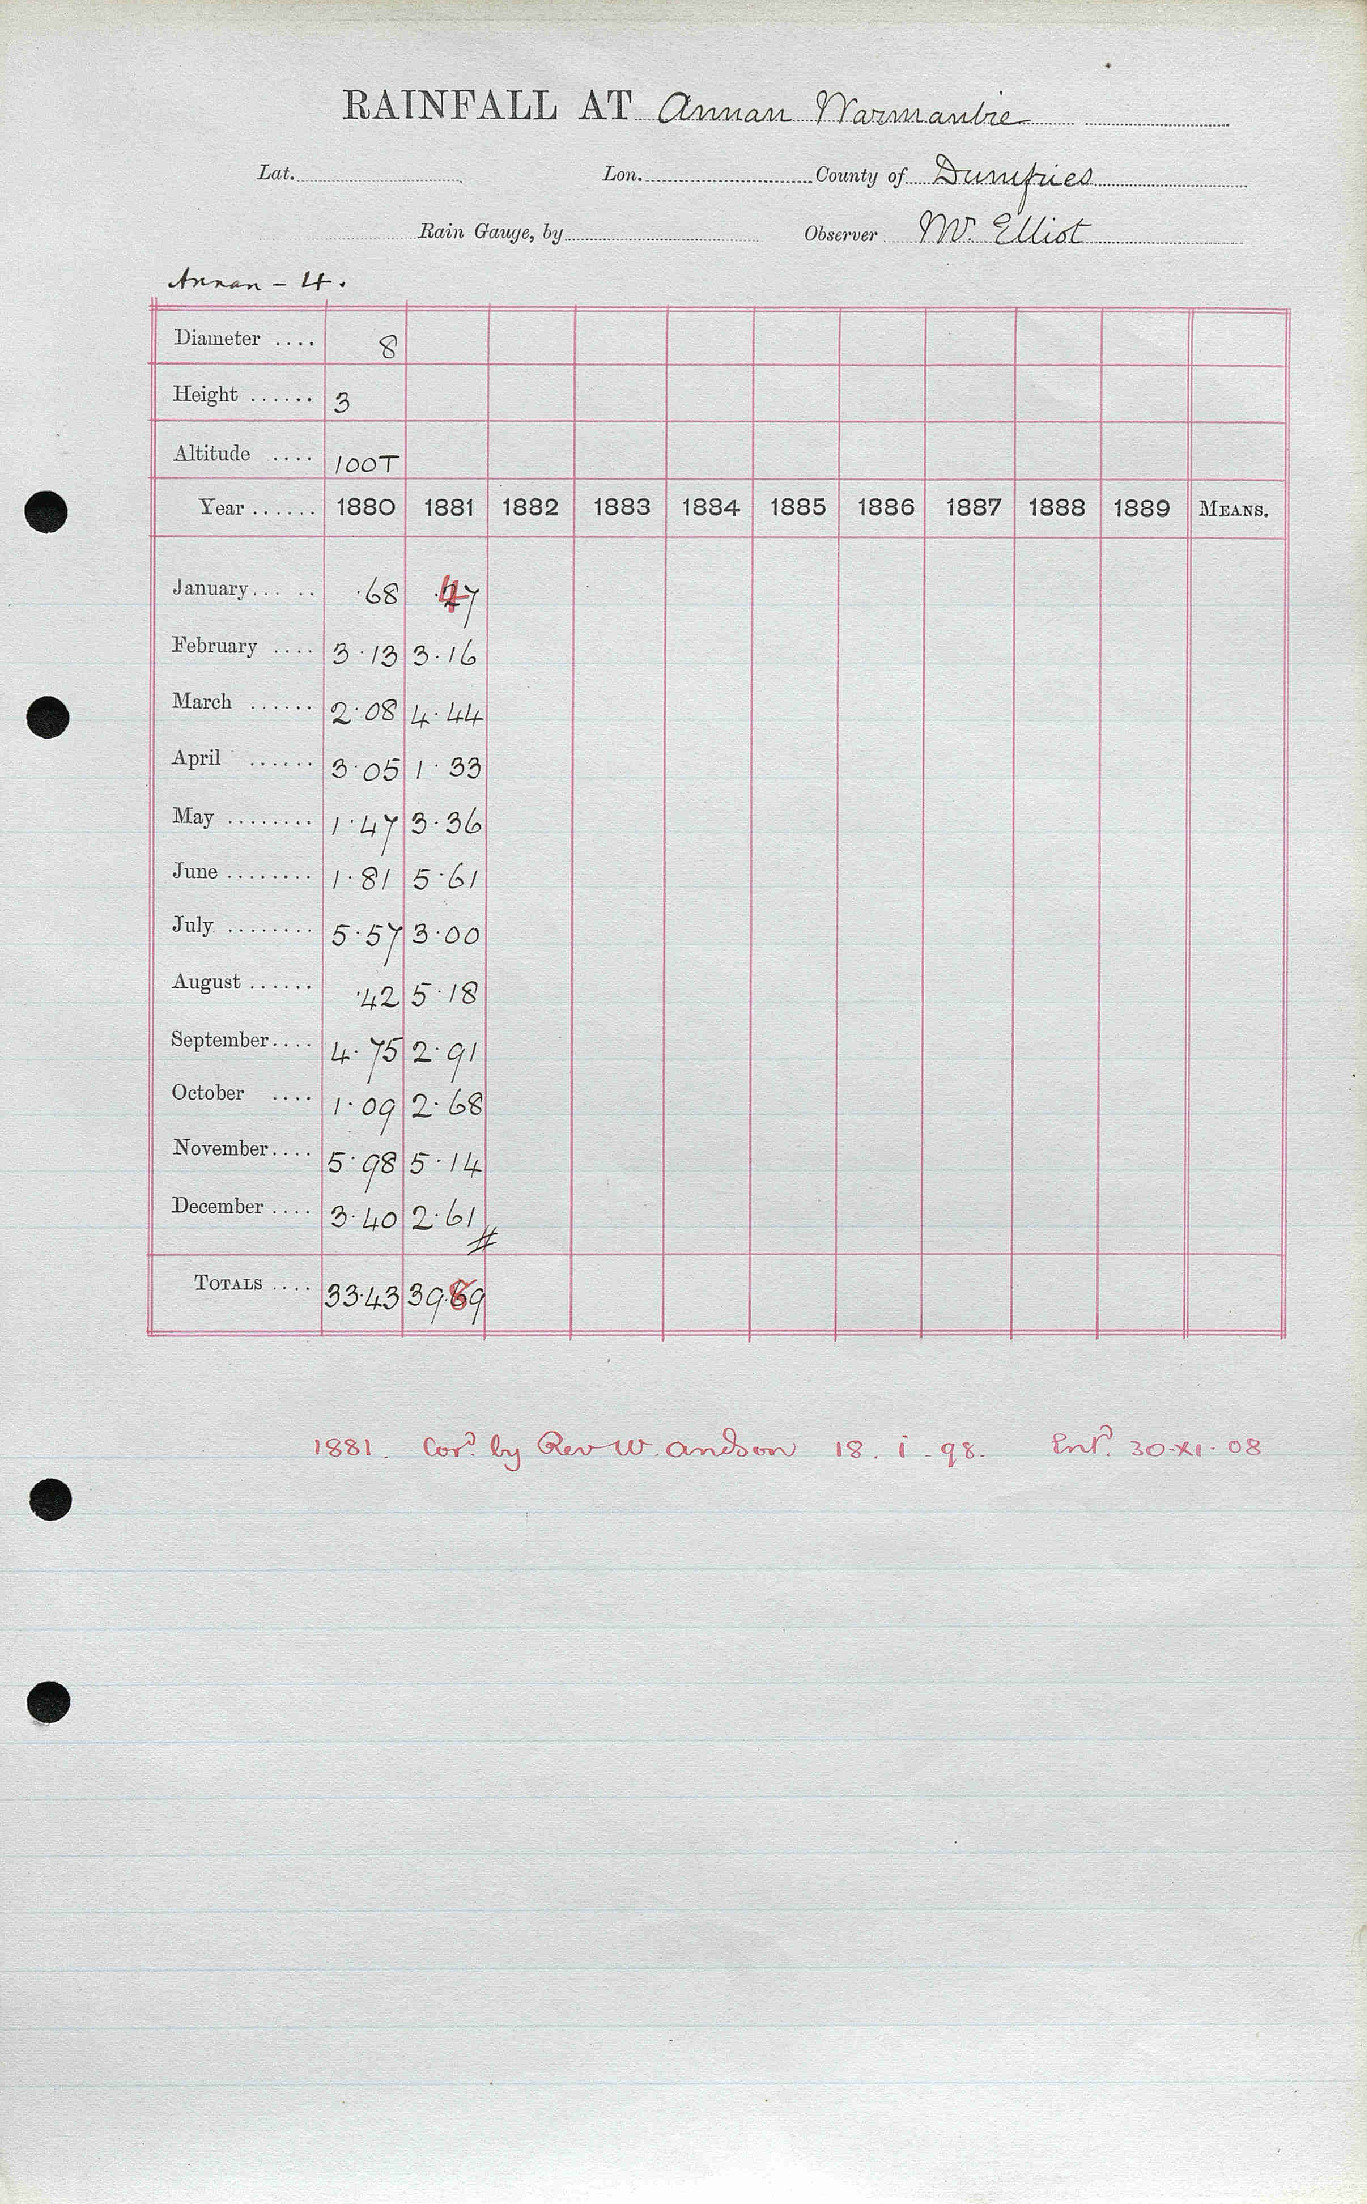 RAINFALL AT Annan Warmanbie
Lat. Lon. County of Dumfries
Rain Gauge, by Observer Mr. Elliot
Annan - 4.
Diameter .... 8
Height ...... 3
Altitude .... 100T
Year ...... 1880 1881 1882 1883 1884 1885 1886 1887 1888 1889 MEANS.
January ..... .68 .47
February .... 3.13 3.16
March ...... 2.08 4.44
April ...... 3.05 1.33
May ........ 1.47 3.36
June ........ 1.81 5.61
July ........ 5.57 3.00
August ...... .42 5.18
September .... 4.75 2.91
October .... 1.09 2.68
November .... 5.98 5.14
December .... 3.40 2.61
TOTALS .... 33.43 39.89
1881. Cord. by Rev W. Andson 18. i. 98. Entd. 30.XI.08